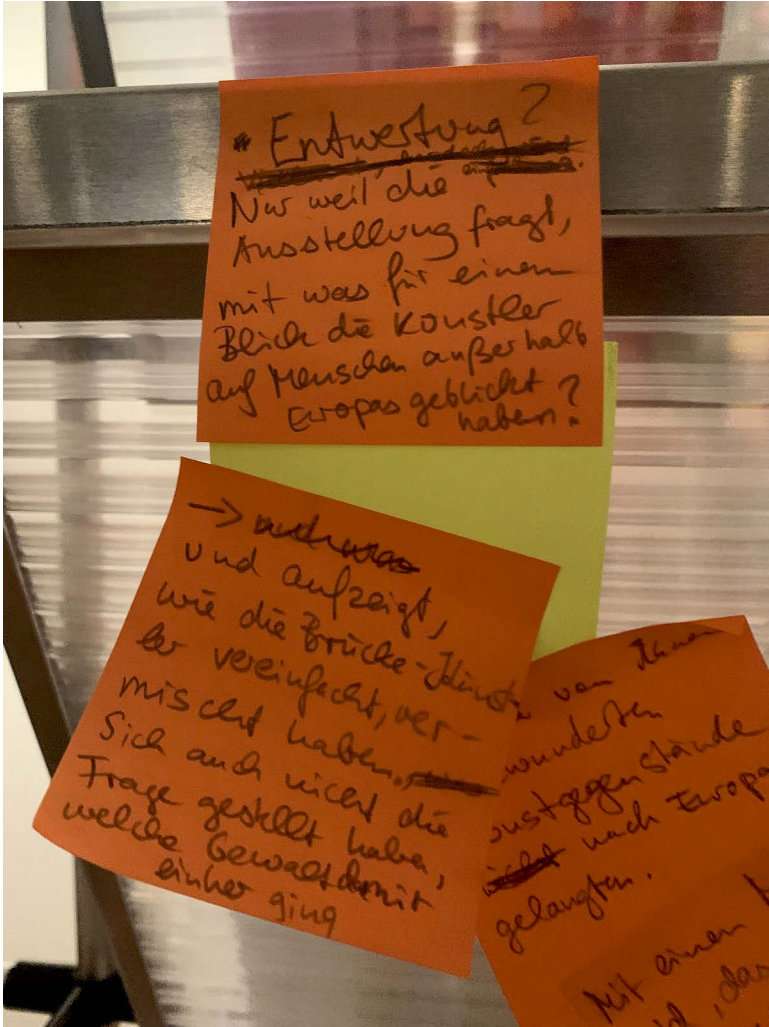 * Entwertung?
Nur weil die
Ausstellung fragt,
mit was für einem
Blick die Künstler
auf Menschen außerhalb
Europas geblickt
haben?
→
und aufzeigt,
wie die Brücke-Künst-
ler vereinfacht, ver-
mischt haben.,
Sich auch nicht die
Frage gestellt haben,
welche Gewalt damit
einher ging
von ihnen
wunderten
unstgegenstände
nach Europa
gelangten.
Mit einem
, das